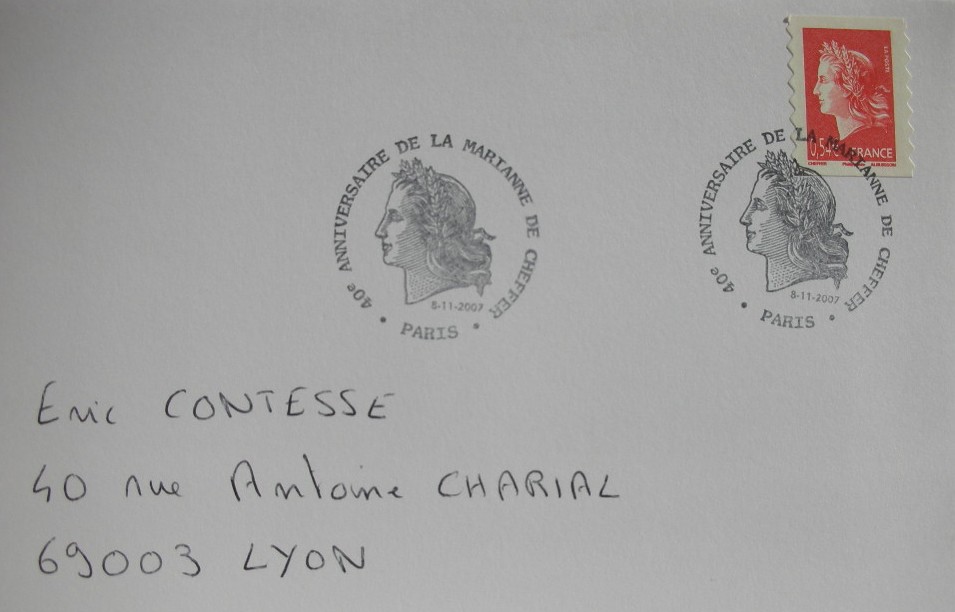 LA POSTE
0,54€ FRANCE
CHEFFER
40e ANNIVERSAIRE DE LA MARIANNE DE CHEFFER
8-11-2007
• PARIS •
40e ANNIVERSAIRE DE LA MARIANNE DE CHEFFER
8-11-2007
• PARIS •
Eric CONTESSE
40 rue Antoine CHARIAL
69003 LYON